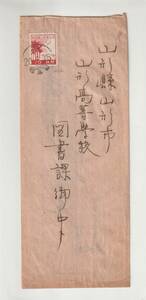 山形縣山形市
山形高等學校
図書課御中